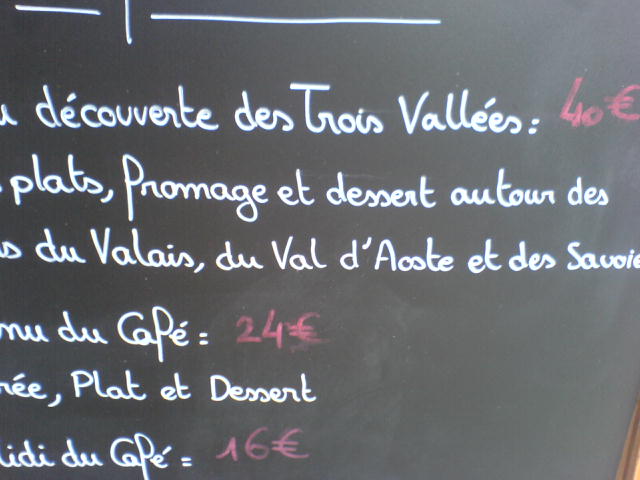 u découverte des Trois Vallées : 40€
plats, fromage et dessert autour des
s du Valais, du Val d'Aoste et des Savoie
nu du Café : 24€
rée, Plat et Dessert
idi du Café = 16€